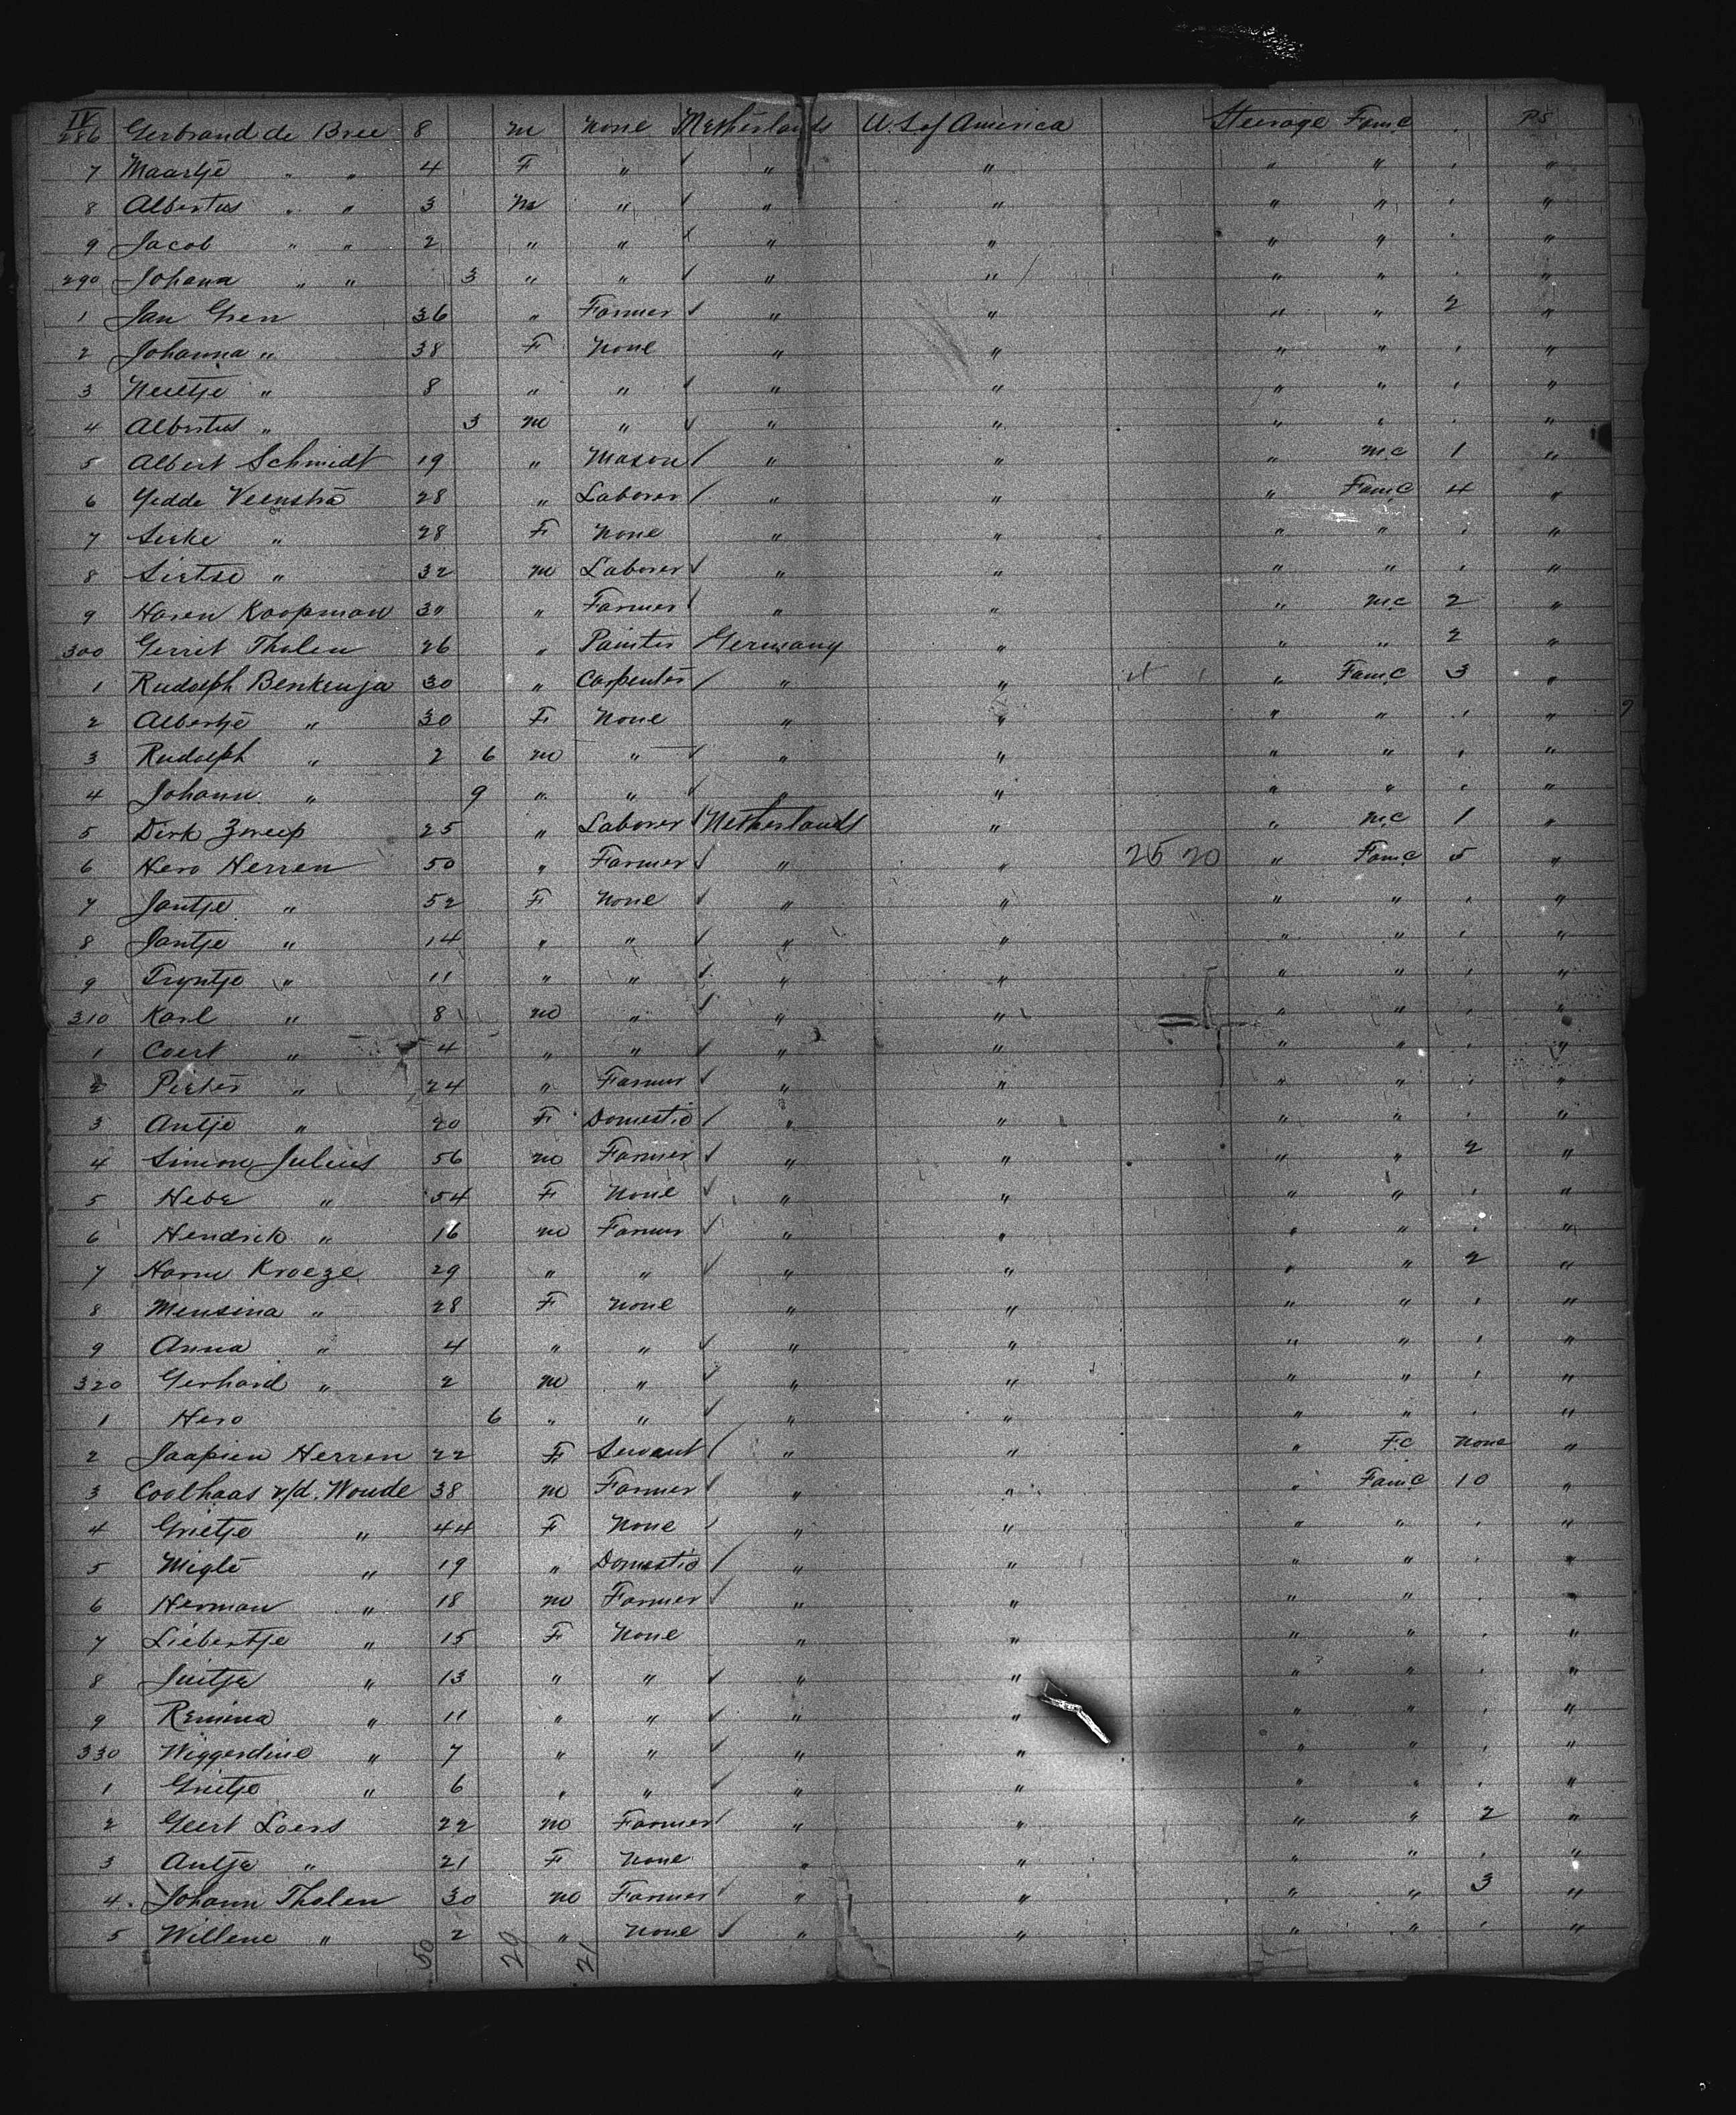 IV
286 Gerbrand de Bree 8 m None Netherlands U.S of America Steerage Fam.C , PS
7 Maartje " " 4 F " " " " " , "
8 Albertus " " 3 m " " " " " , "
9 Jacob " " 2 " " " " " " , "
290 Johana " " 3 " " " " " " , "
1 Jan Gren 36 " Farmer " " " " 2 "
2 Johanna " 38 F None " " " " , "
3 Neeltje " 8 " " " " " " , "
4 Albertus " 3 m " " " " " , "
5 Albert Schmidt 19 " Mason " " " m.c 1 "
6 Yedde Veenstra 28 " Laborer " " " Fam.C 4 "
7 Sieke " 28 F None " " " " , "
8 Sietse " 32 m Laborer " " " " , "
9 Haren Koopman 30 " Farmer " " " m.c 2 "
300 Gerrit Tholen 26 " Painter Germany " " " 2 "
1 Rudolph Benkenja 30 " Carpenter " " " Fam.C 3 "
2 Albertje " 30 F None " " " " , "
3 Rudolph " 2 6 m " " " " " , "
4 Johann " 9 " " " " " " , "
5 Dirk Zweep 25 " Laborer Netherlands " " m.c 1 "
6 Hero Herren 50 " Farmer " " 25 20 " Fam.C 5 "
7 Jantje " 52 F None " " " " , "
8 Jantje " 14 " " " " " " , "
9 Tryntje " 11 " " " " " " , "
310 Karl " 8 m " " " " " , "
1 Coert " 4 " " " " " " , "
2 Pieter " 24 " Farmer " " " " , "
3 Antje " 20 F Domestic " " " " , "
4 Simon Julius 56 m Farmer " " " " 2 "
5 Hebe " 54 F None " " " " , "
6 Hendrik " 16 m Farmer " " " " , "
7 Harm Kroeze 29 " " " " " " 2 "
8 Mensina " 28 F None " " " " , "
9 Anna " 4 " " " " " " , "
320 Gerhard " 2 m " " " " " , "
1 Hero 6 " " " " " " , "
2 Jaapien Herren 22 F Servant " " " F.C None "
3 Coolhaas v/d. Woude 38 m Farmer " " " Fam.C 10 "
4 Grietje " 44 F None " " " " , "
5 Migle " 19 " Domestic " " " " , "
6 Herman " 18 m Farmer " " " " , "
7 Liebertje " 15 F None " " " " , "
8 Juitje " 13 " " " " " " , "
9 Remina " 11 " " " " " " , "
330 Wiggerdine " 7 " " " " " " , "
1 Grietje " 6 " " " " " " , "
2 Geert Loers 22 m Farmer " " " " 2 "
3 Antje " 21 F None " " " " , "
4 Johann Tholen 30 m Farmer " " " " 3 "
5 Willene " 2 " None " " " " , "
50 29 21